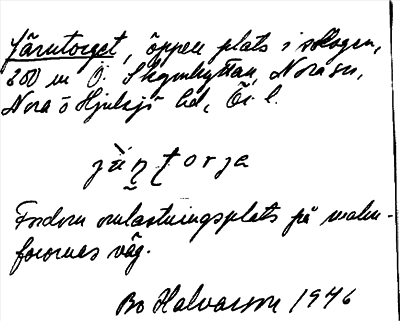 Järntorget, öppen plats i skogen,
200 m Ö. Skymhyttan, Nora sn,
Nora o Hjulsjö hd, Ö. l.
jä̀ṇṭorja
Fordom omlastningsplats på malm-
forornas väg.
Bo Halvarson 1946